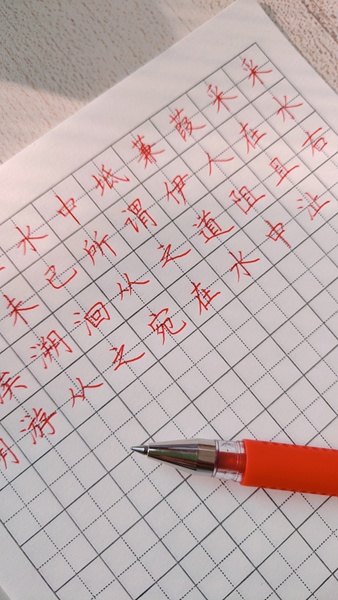 水中坻蒹葭采采
未已所谓伊人在水
溯洄从之道阻且右
游从之宛在水中沚